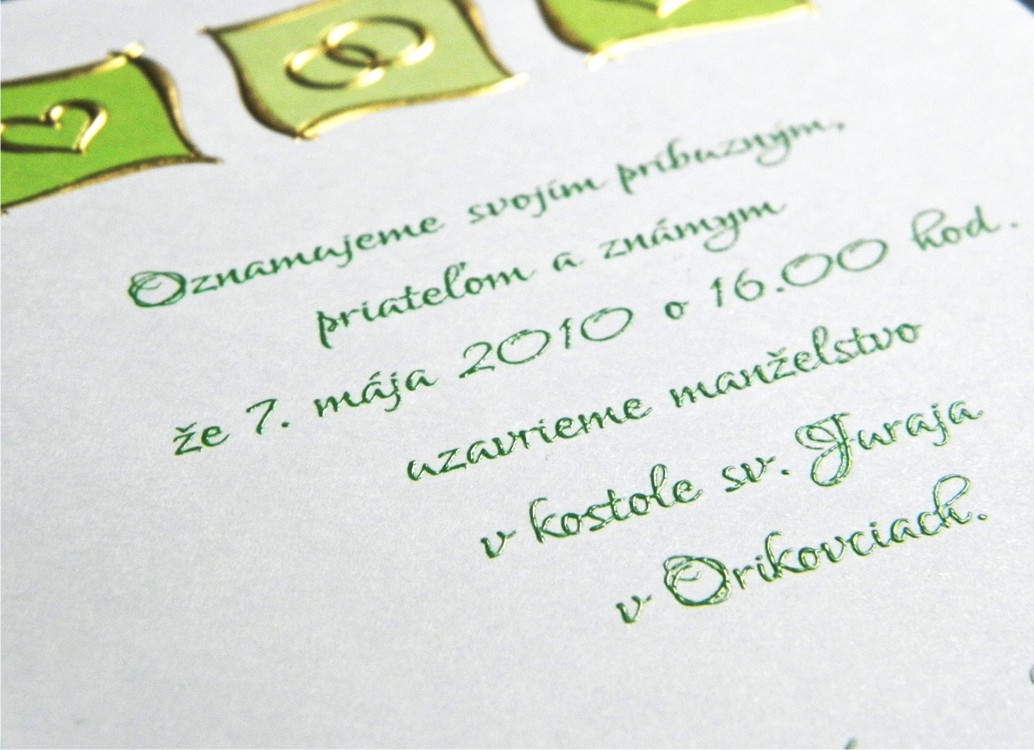 Oznamujeme svojím príbuzným,
priateľom a známym
že 7. mája 2010 o 16.00 hod.
uzavrieme manželstvo
v kostole sv. Juraja
v Orikovciach.